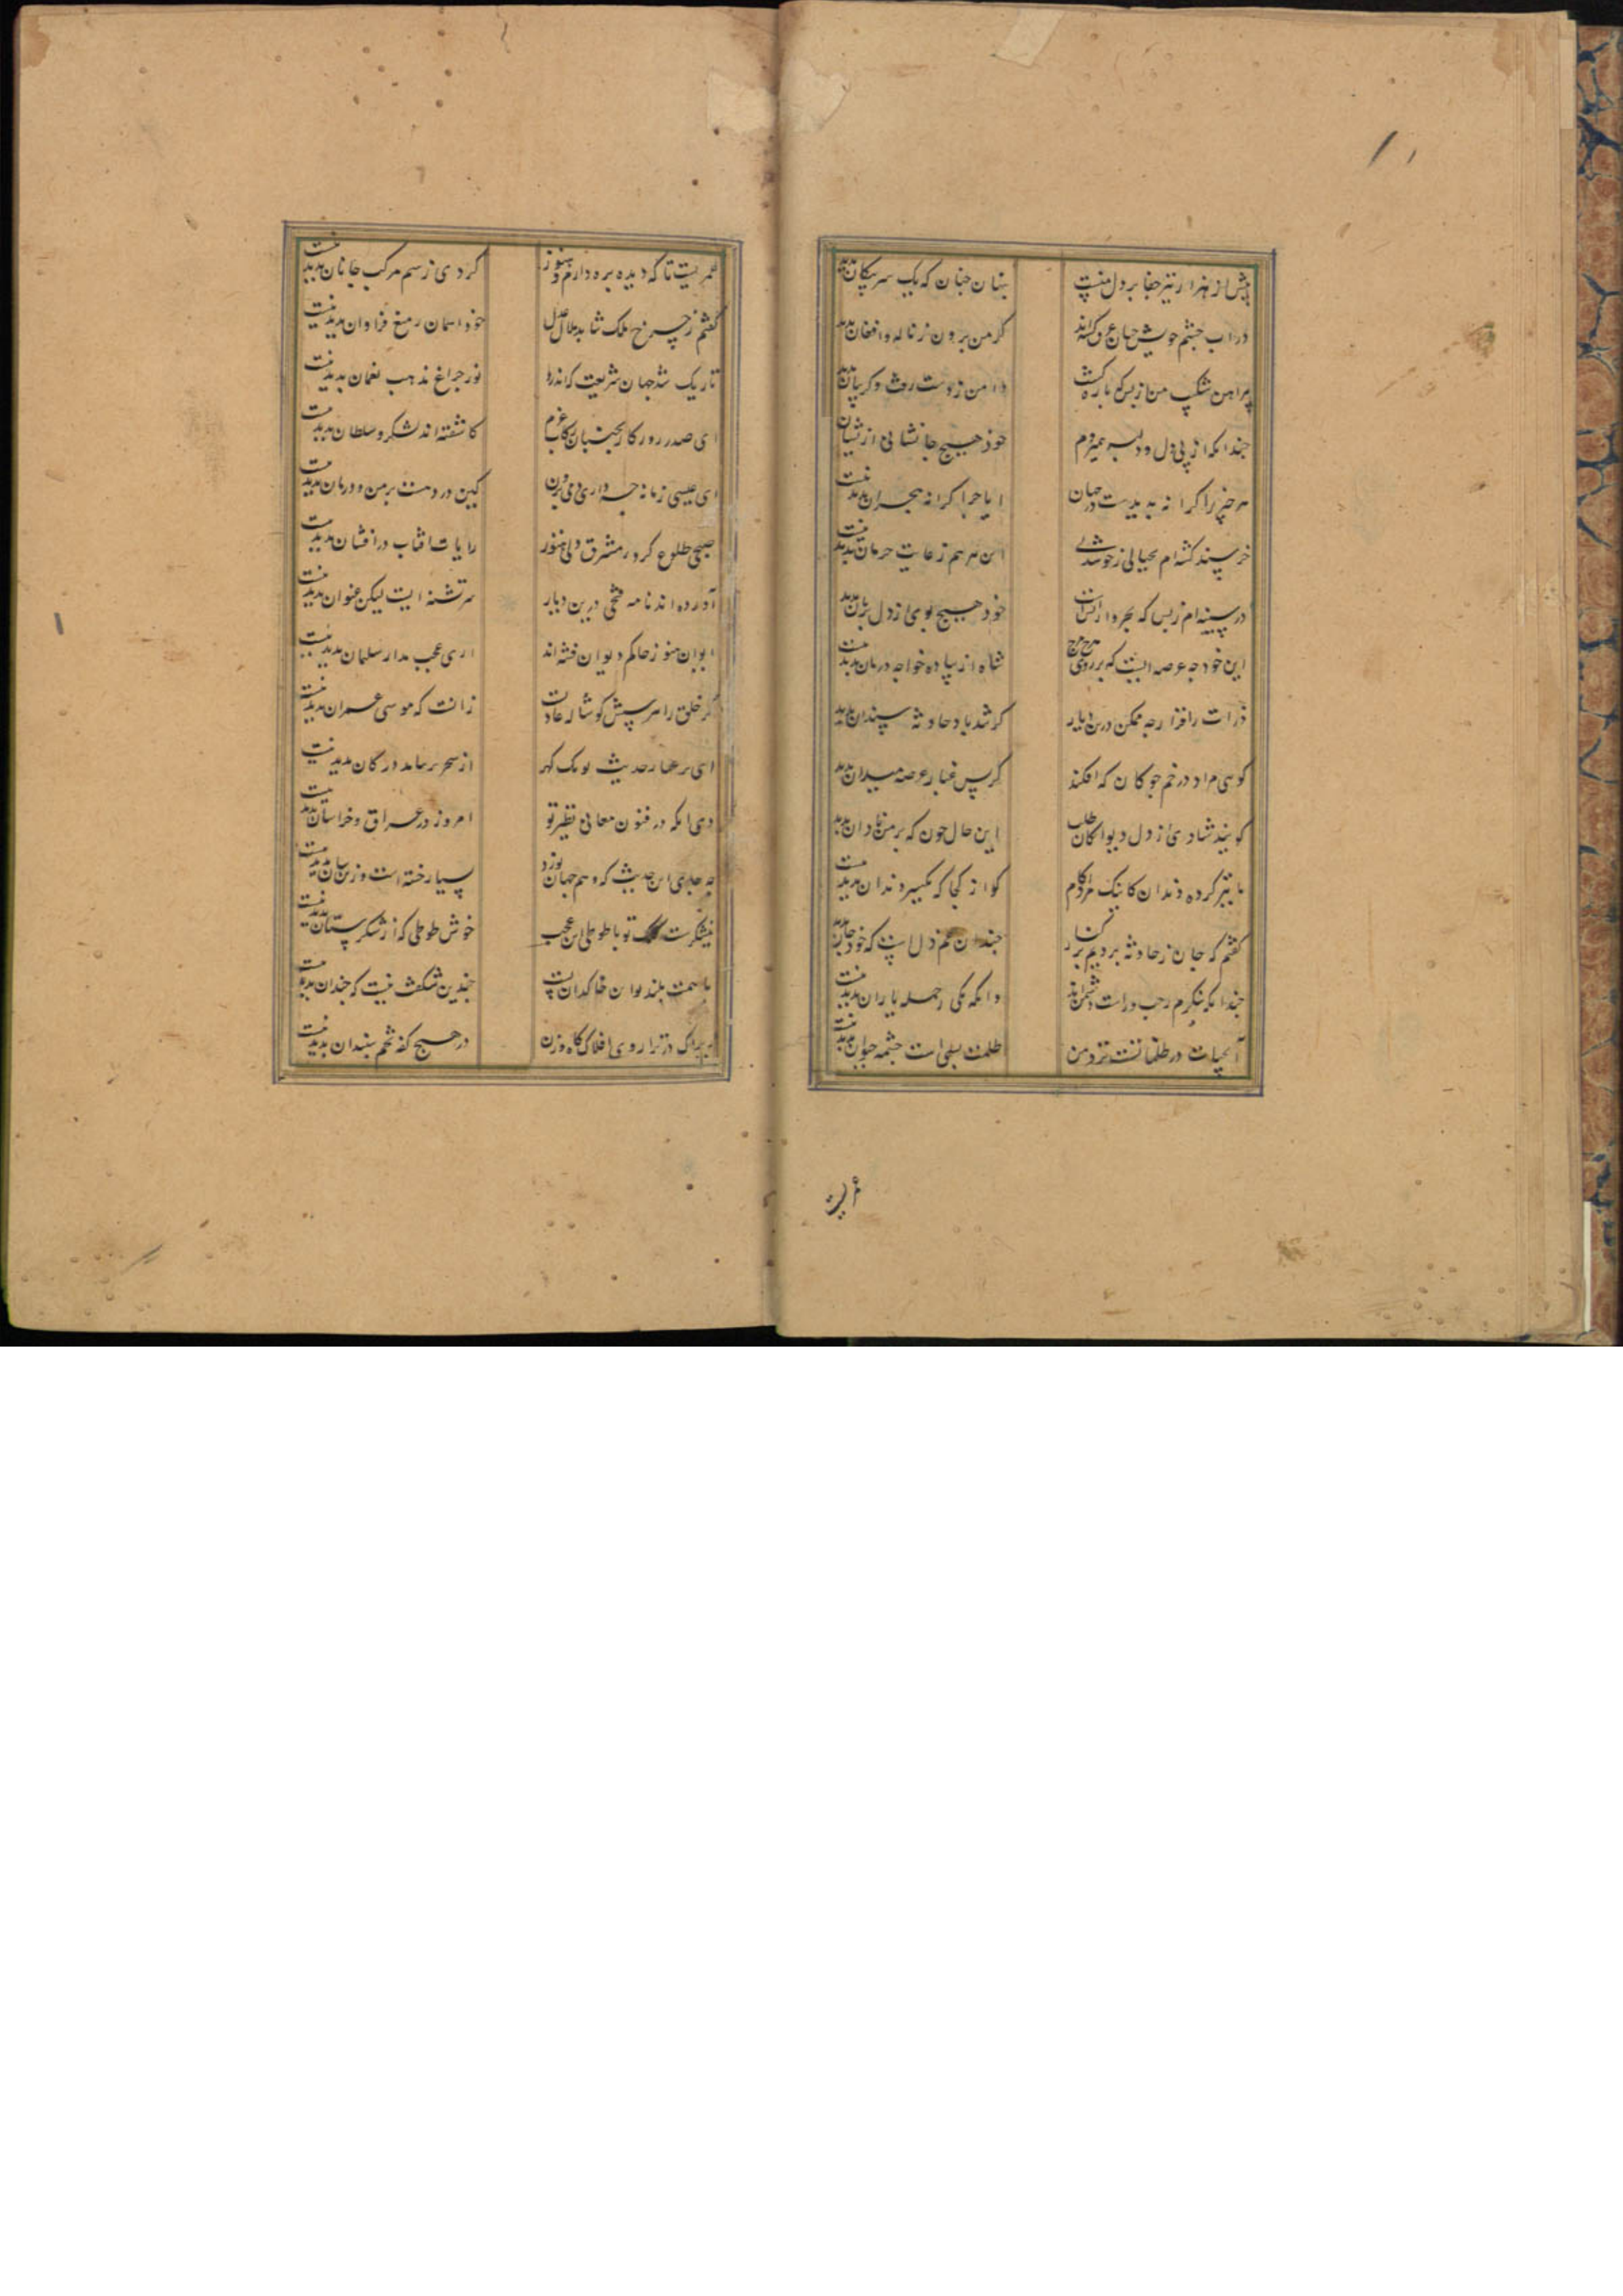 بیش از هزار تیر جفا بر دل منست
پنهان جنان که یک سر پیکان بدید نیست
در آب چشم خویش جنان غرق
کز من برون ز ناله و افغان بدید
پیراهن شکیب من از بس که باره گشت
دامن ز دست رفت و کریبان بدید
جندانکه از پی دل و دلبر همی‌روم
خود هیچ جا نشانی ازیشان
هر چیز را کرانه بدیدست در جهان
ایا جرا کرانه هجران بدید نیست
خرسند کشته‌ام بخیالی ز خوشدلی
این هم ز غایت حرمان بدید نیست
در سینه‌ام ز بس که
خود هیچ بوی از دل بریان بدید
این خود جه عرصه ایست که بر روی
شاه از پیاده خواجه ز دربان بدید نیست
ذرات را قرار جه ممکن درین دیار
کز تندباد حادثه سندان بدید
کوی مراد در خم جوکان که افکند
کز بس غبار عرصه میدان بدید
کویند شادی از دل دیوانکان طلب
این حال جون که بر من نادان بدید
ما تیز کرده دندان کاینک
کو از کجا که یکسر دندان بدید نیست
کفتم که جان ز حادثه بردیم بر کنار
جندان غم دل است که خود جان بدید
جندانکه بنکرم جب و راست دشمن‌اند
وانکه یکی ز جمله یاران بدید نیست
آبحیات در ظلماتست نزد من
ظلمت بسی است چشمه حیوان بدید نیست
عمریست
عمریست تا که دیده بره دارم و هنوز
کردی ز سم مرکب جانان بدید نیست
کفتم ز چرخ ملک شاید هلال عدل
خود آسمان ز میغ فراوان بدید نیست
تاریک شد جهان شریعت که اندرو
نور جراغ مذهب نعمان بدید نیست
ای صدر روزکار بجنبان رکاب عزم
کاشفته‌اند لشکر و سلطان بدید نیست
ای عیسی زمانه جه داری دمی بزن
کین درد هست بر من و درمان بدید نیست
صبحی طلوع کرد ز مشرق ولی هنوز
رایات افتاب درافشان بدید نیست
آورده‌اند نامه فتحی درین دیار
سرتشنه ایست لیکن عنوان بدید نیست
ایوان هنوز حاکم دیوان نشسته‌اند
اری عجب مدار سلیمان بدید نیست
کر خلق را پرستش کوساله عادت
زانست که موسی عمران بدید نیست
ای بر عیار حدیث تو یک کهر
از بحر برنیامد و در کان بدید نیست
وی انکه در فنون معانی نظیر تو
امروز در عراق و خراسان بدید نیست
جه جای این حدیث که وهم جهان نورد
بسیار جسته است و زینسان بدید نیست
نیشکرست کلک تو یا طوطی این عجب
خوش طوطی که از شکرستان بدید نیست
با همت بلند تو این خاکدان پست
جندین شکفت نیست که جندان بدید نیست
زیراک در ترازوی افلاک کاه وزن
در هیچ کفه تخم سپندان بدید نیست